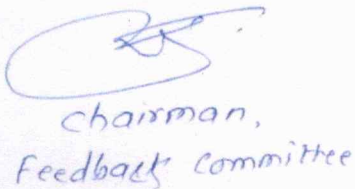 Chairman,
Feedback Committee